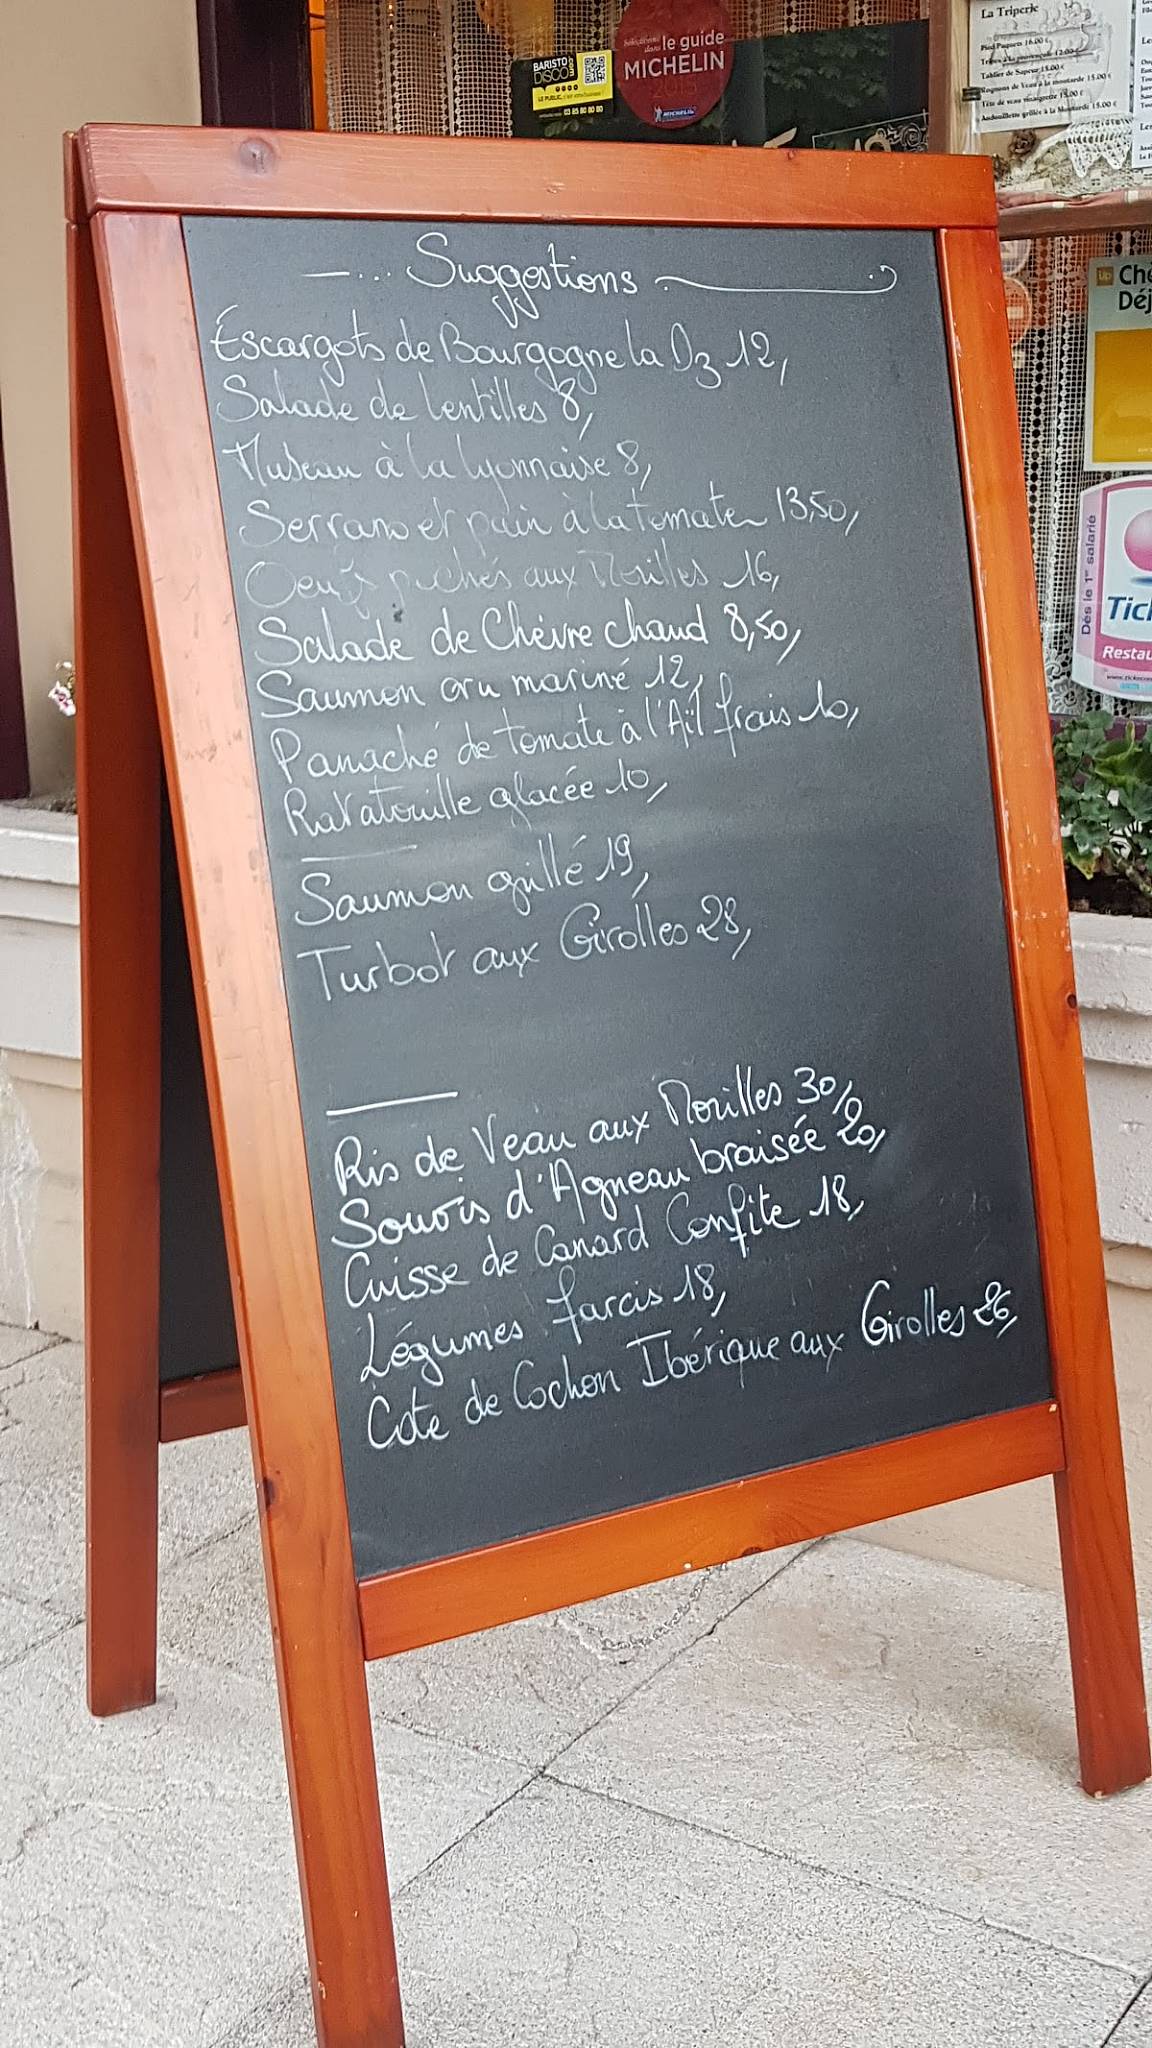 BARISTO
DISCO.com
LE PUBLIC,
03 85 80 80 80
Sélectionné dans le guide
MICHELIN
2015
MICHELIN
La Triperie
Pied Paquets 16.00 €
12.00 €
Tablier de Sapeur 15.00 €
Rognons de Veau à la moutarde 15.00 €
Tête de veau vinaigrette 15.00 €
Andouillette grillée à la Moutarde 15.00 €
Suggestions
Éscargots de Bourgogne la Dz 12,
Salade de lentilles 8,
Museau à la lyonnaise 8,
Serrano et pain à la tomate 13,50,
Oeufs pochés aux Morilles 16,
Salade de Chèvre chaud 8,50,
Saumon cru mariné 12,
Panaché de tomate à l'Aïl frais 10,
Ratatouille glacée 10,
Saumon grillé 19,
Turbot aux Girolles 28,
Ris de Veau aux Morilles 30,
Souris d'Agneau braisée 20,
Cuisse de Canard Confite 18,
Légumes farcis 18,
Côte de Cochon Ibérique aux Girolles 26,
Up Ch
Déj
Dès le 1er salarié
Tic
Restau